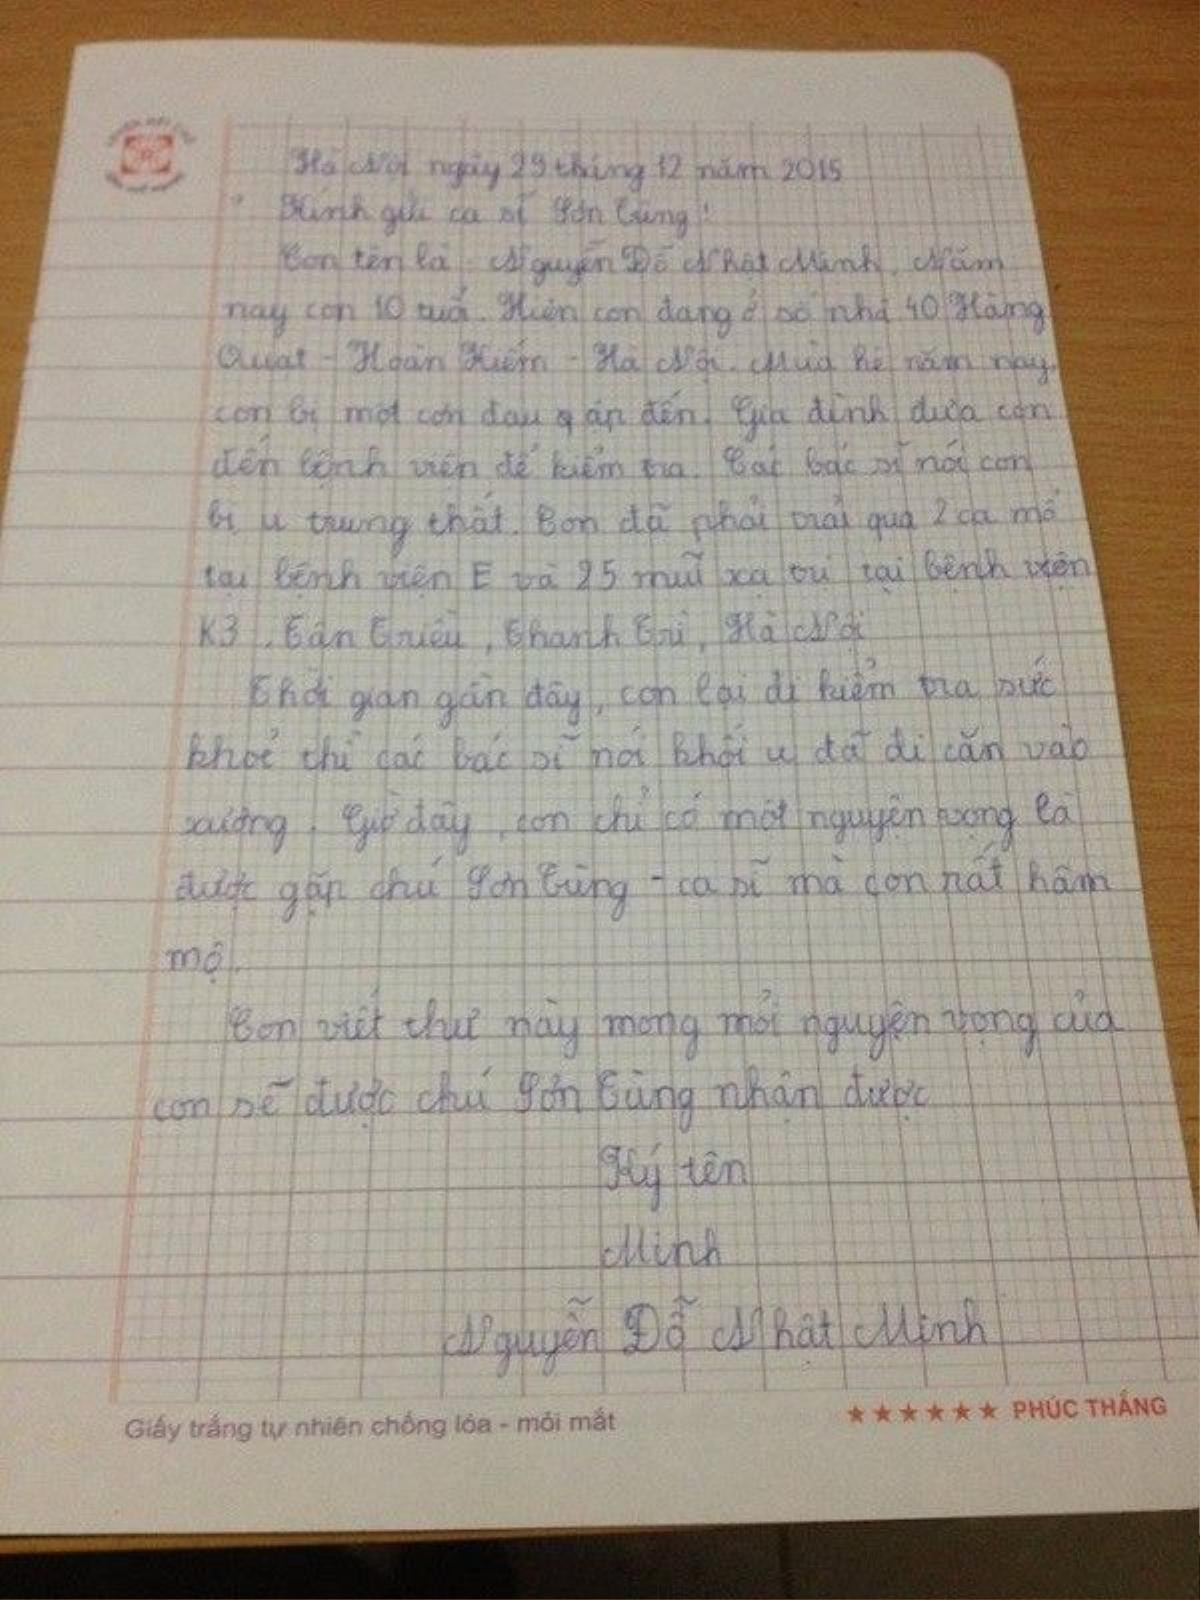 Hà Nội ngày 29 tháng 12 năm 2015
Kính gửi ca sĩ Sơn Tùng!
Con tên là Nguyễn Đỗ Nhật Minh. Năm
nay con 10 tuổi. Hiện con đang ở số nhà 40 Hàng
Quạt - Hoàn Kiếm - Hà Nội. Mùa hè năm nay,
con bị một cơn đau gáp đến. Gia đình đưa con
đến bệnh viện để kiểm tra. Các bác sĩ nói con
bị u trung thất. Con đã phải trải qua 2 ca mổ
tại bệnh viện E và 25 mũi xạ trị tại bệnh viện
K3, Tân Triều, Thanh Trì, Hà Nội
Thời gian gần đây, con lại đi kiểm tra sức
khoẻ thì các bác sĩ nói khối u đã di căn vào
xương. Giờ đây, con chỉ có một nguyện vọng là
được gặp chú Sơn Tùng - ca sĩ mà con rất hâm
mộ.
Con viết thư này mong mỏi nguyện vọng của
con sẽ được chú Sơn Tùng nhận được
Ký tên
Minh
Nguyễn Đỗ Nhật Minh
Giấy trắng tự nhiên chống lóa - mỏi mắt
★★★★★★ PHÚC THẮNG